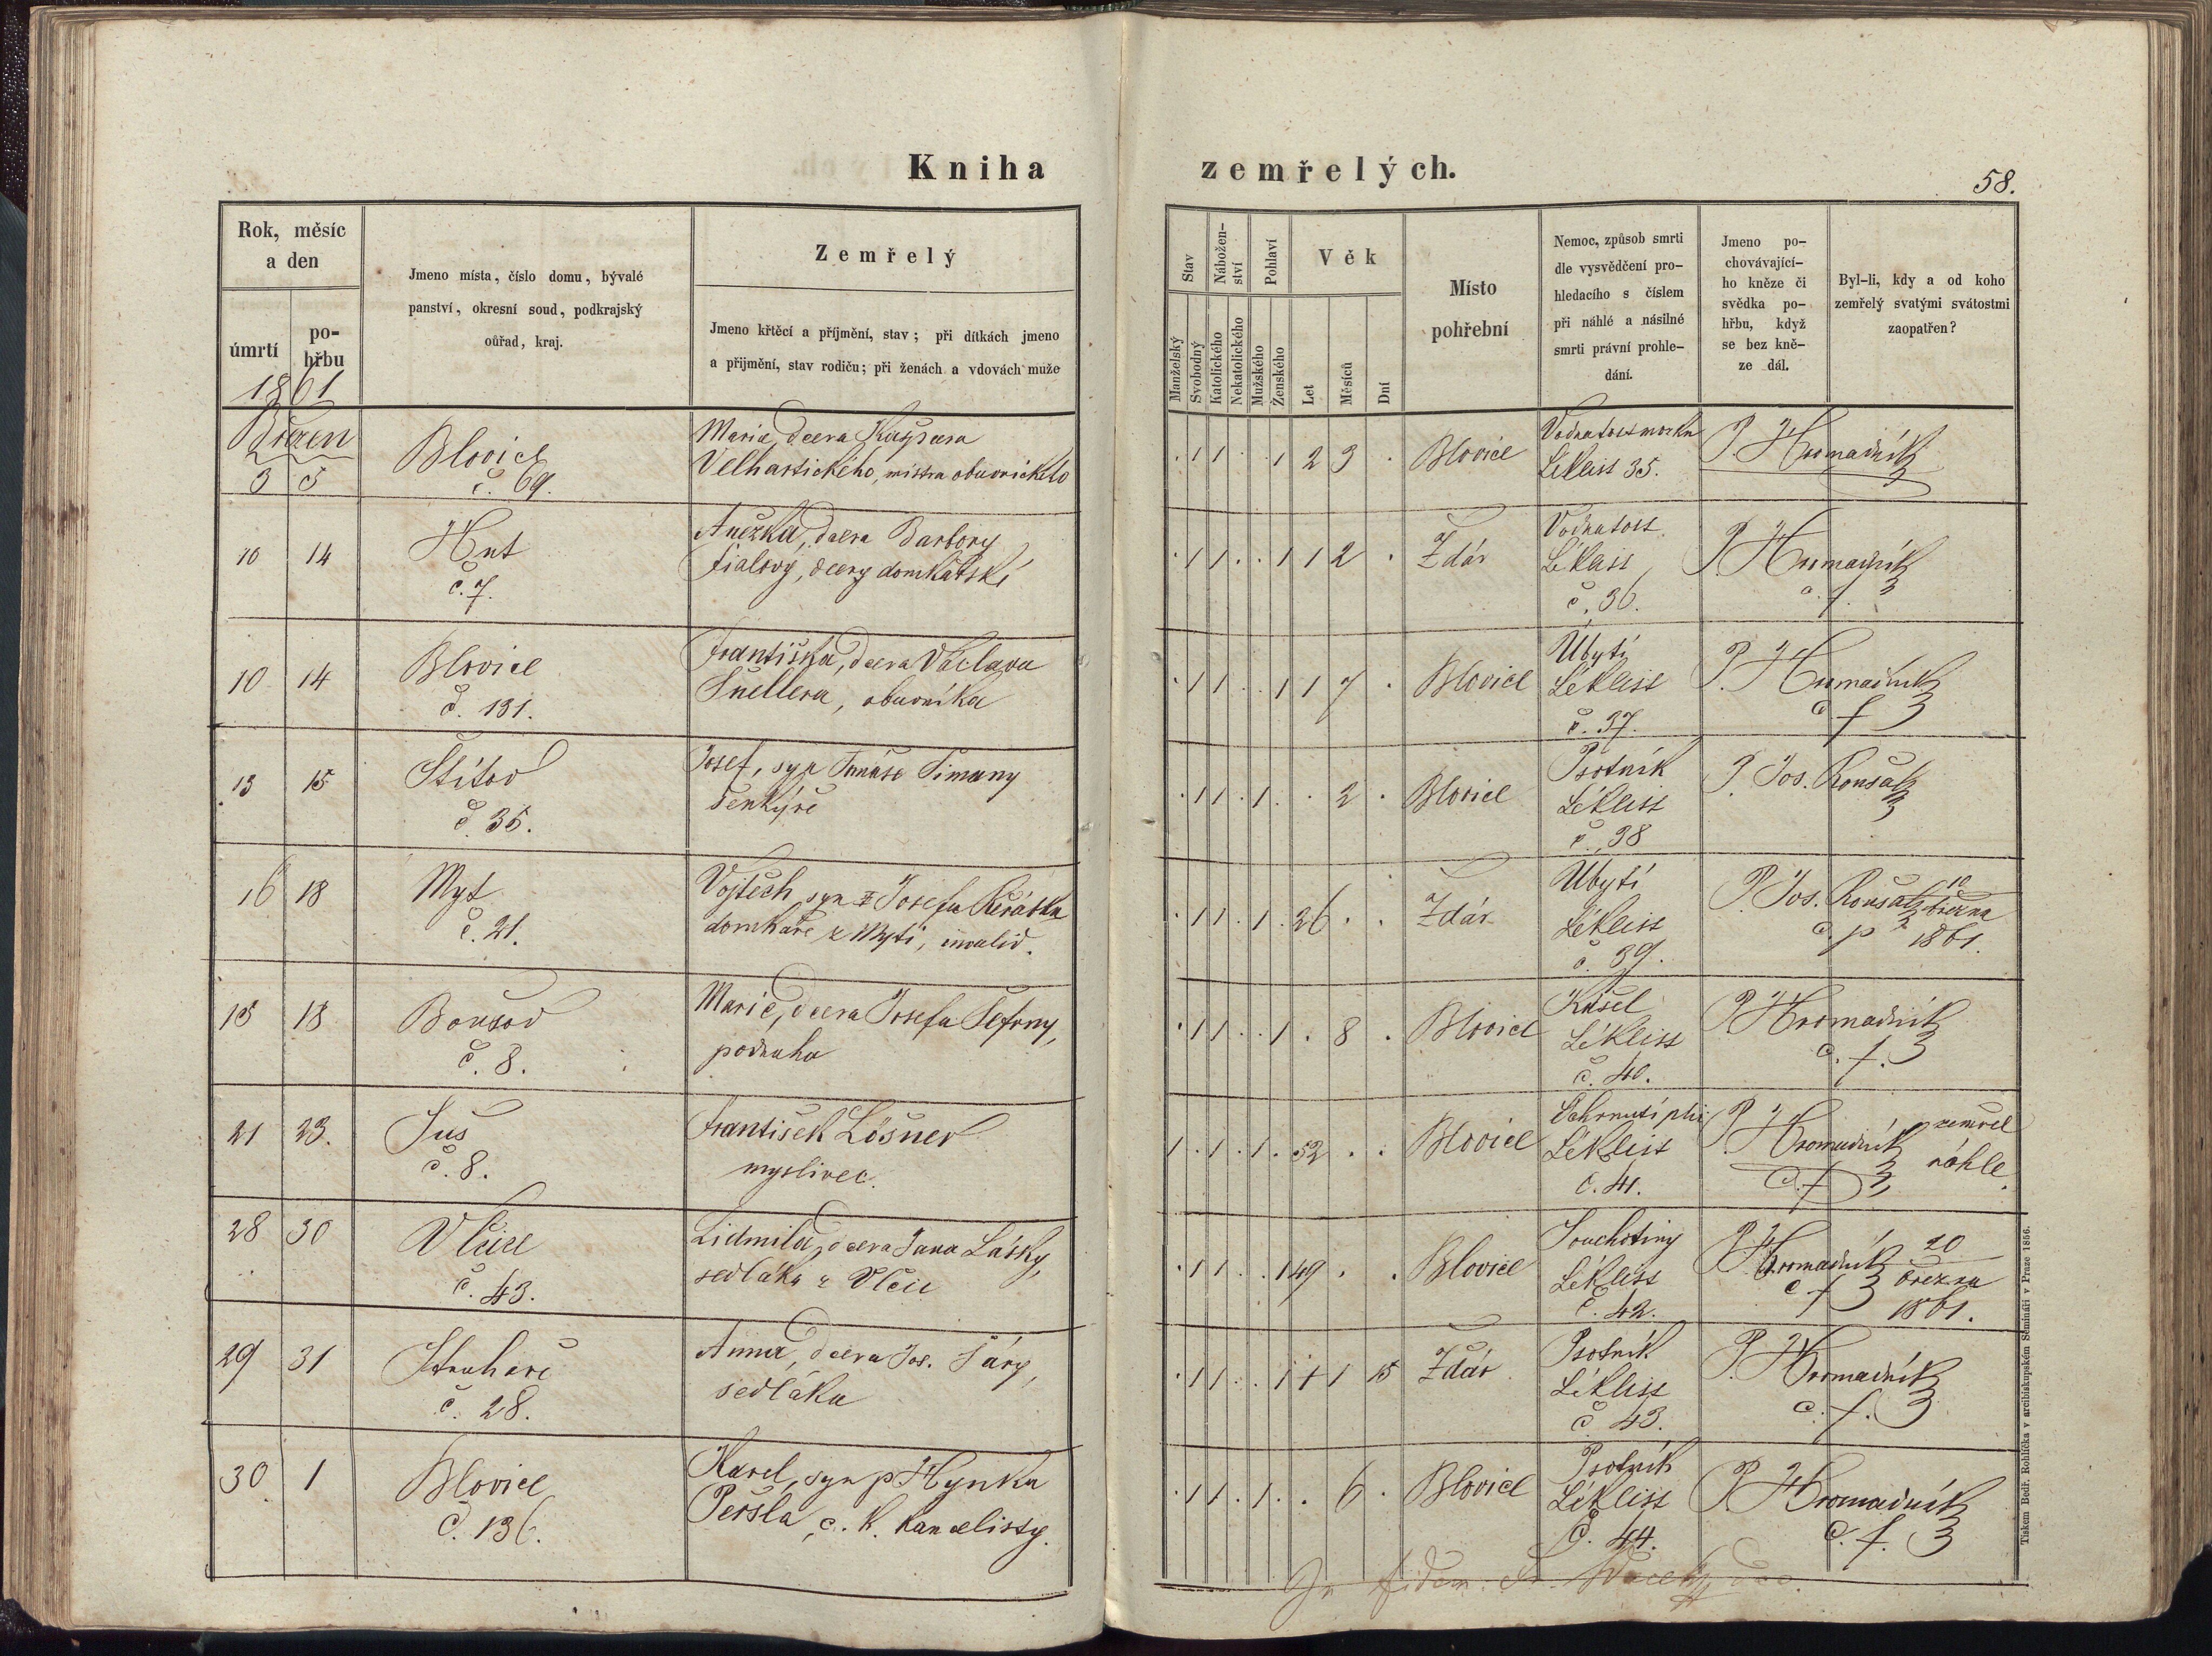 Kniha zemřelých.
58.
Rok, měsíc
a den
úmrtí
po-
hřbu
Jmeno místa, číslo domu, bývalé
panství, okresní soud, podkrajský
ouřad, kraj.
Zemřelý
Jmeno křtěcí a příjmění, stav; při dítkách jmeno
a přijmění, stav rodičů; při ženách a vdovách muže
Stav
Manželský
Svobodný
Nábožen-
ství
Katolického
Nekatolického
Pohlaví
Mužského
Ženského
Věk
Let
Měsíců
Dní
Místo
pohřební
Nemoc, způsob smrti
dle vysvědčení pro-
hledacího s číslem
při náhlé a násilné
smrti právní prohle-
dání.
Jmeno po-
chovávající-
ho kněze či
svědka po-
hřbu, když
se bez kně-
ze dál.
Byl-li, kdy a od koho
zemřelý svatými svátostmi
zaopatřen?
1861
Březen
3 5
Blovice
č. 69.
Marie, dcera Kašpara
Velhartického, mistra obuvnického
. 1 1 . . 1 2 3 .
Blovice
Lékliss 35.
P. Hromadník
10 14
Hut
č. 7.
Anežka, dcera Barbory
Fialový, dcery domkářské
. 1 1 . . 1 1 2 .
Ždár
Vodnatost
Lékliss
č. 36.
P. Hromadník
c. f.
10 14
Blovice
č. 131.
Františka, dcera Václava
Šnellera, obuvníka
. 1 1 . . 1 1 7 .
Blovice
Úbytí
Lékliss
č. 37.
P. Hromadník
c. f.
13 15
Štítov
č. 35.
Josef, syn Tomáše Šimany
šenkýře
. 1 1 . 1 . . 2 .
Blovice
Psotník
Lékliss
č. 38
P. Jos. Roušal
16 18
Myt
č. 21.
Vojtěch, syn Josefa
domkáře z Mytí, invalid.
. 1 1 . 1 . 26 . .
Ždár
Úbytí
Lékliss
č. 39.
P. Jos. Roušal
10
března
1861.
15 18
Boušov
č. 8.
Marie, dcera Josefa Šefrny,
podruha
. 1 1 . . 1 . 8 .
Blovice
Kašel
Lékliss
č. 40.
P. Hromadník
c. f.
21 23.
č. 8.
František Lösner
myslivec.
1 . 1 . 1 . 52 . .
Blovice
Lékliss
č. 41.
P. Hromadník
c. f.
zemřel
náhle.
28 30
Vlčice
č. 43.
Lidmila, dcera Jana Lásky,
sedláka z Vlčic
. 1 1 . . 1 49 . .
Blovice
Souchotiny
Lékliss
č. 42.
P. Hromadník
c. f.
20
března
1861.
29 31
Struhaře
č. 28.
Anna, dcera Jos. Šáry,
sedláka
1 15
Ždár
Psotník
Lékliss
č. 43.
P. Hromadník
c. f.
30 1
Blovice
č. 136.
Karel, syn p Hynka
Peršla, c. k. kancelisty.
. 1 1 . 1 . . 6 .
Blovice
Psotník
Lékliss
č. 44.
P. Hromadník
c. f.
In fidem:
Tiskem Bedř. Rohlíčka v arcibiskupském Semináři v Praze 1856.